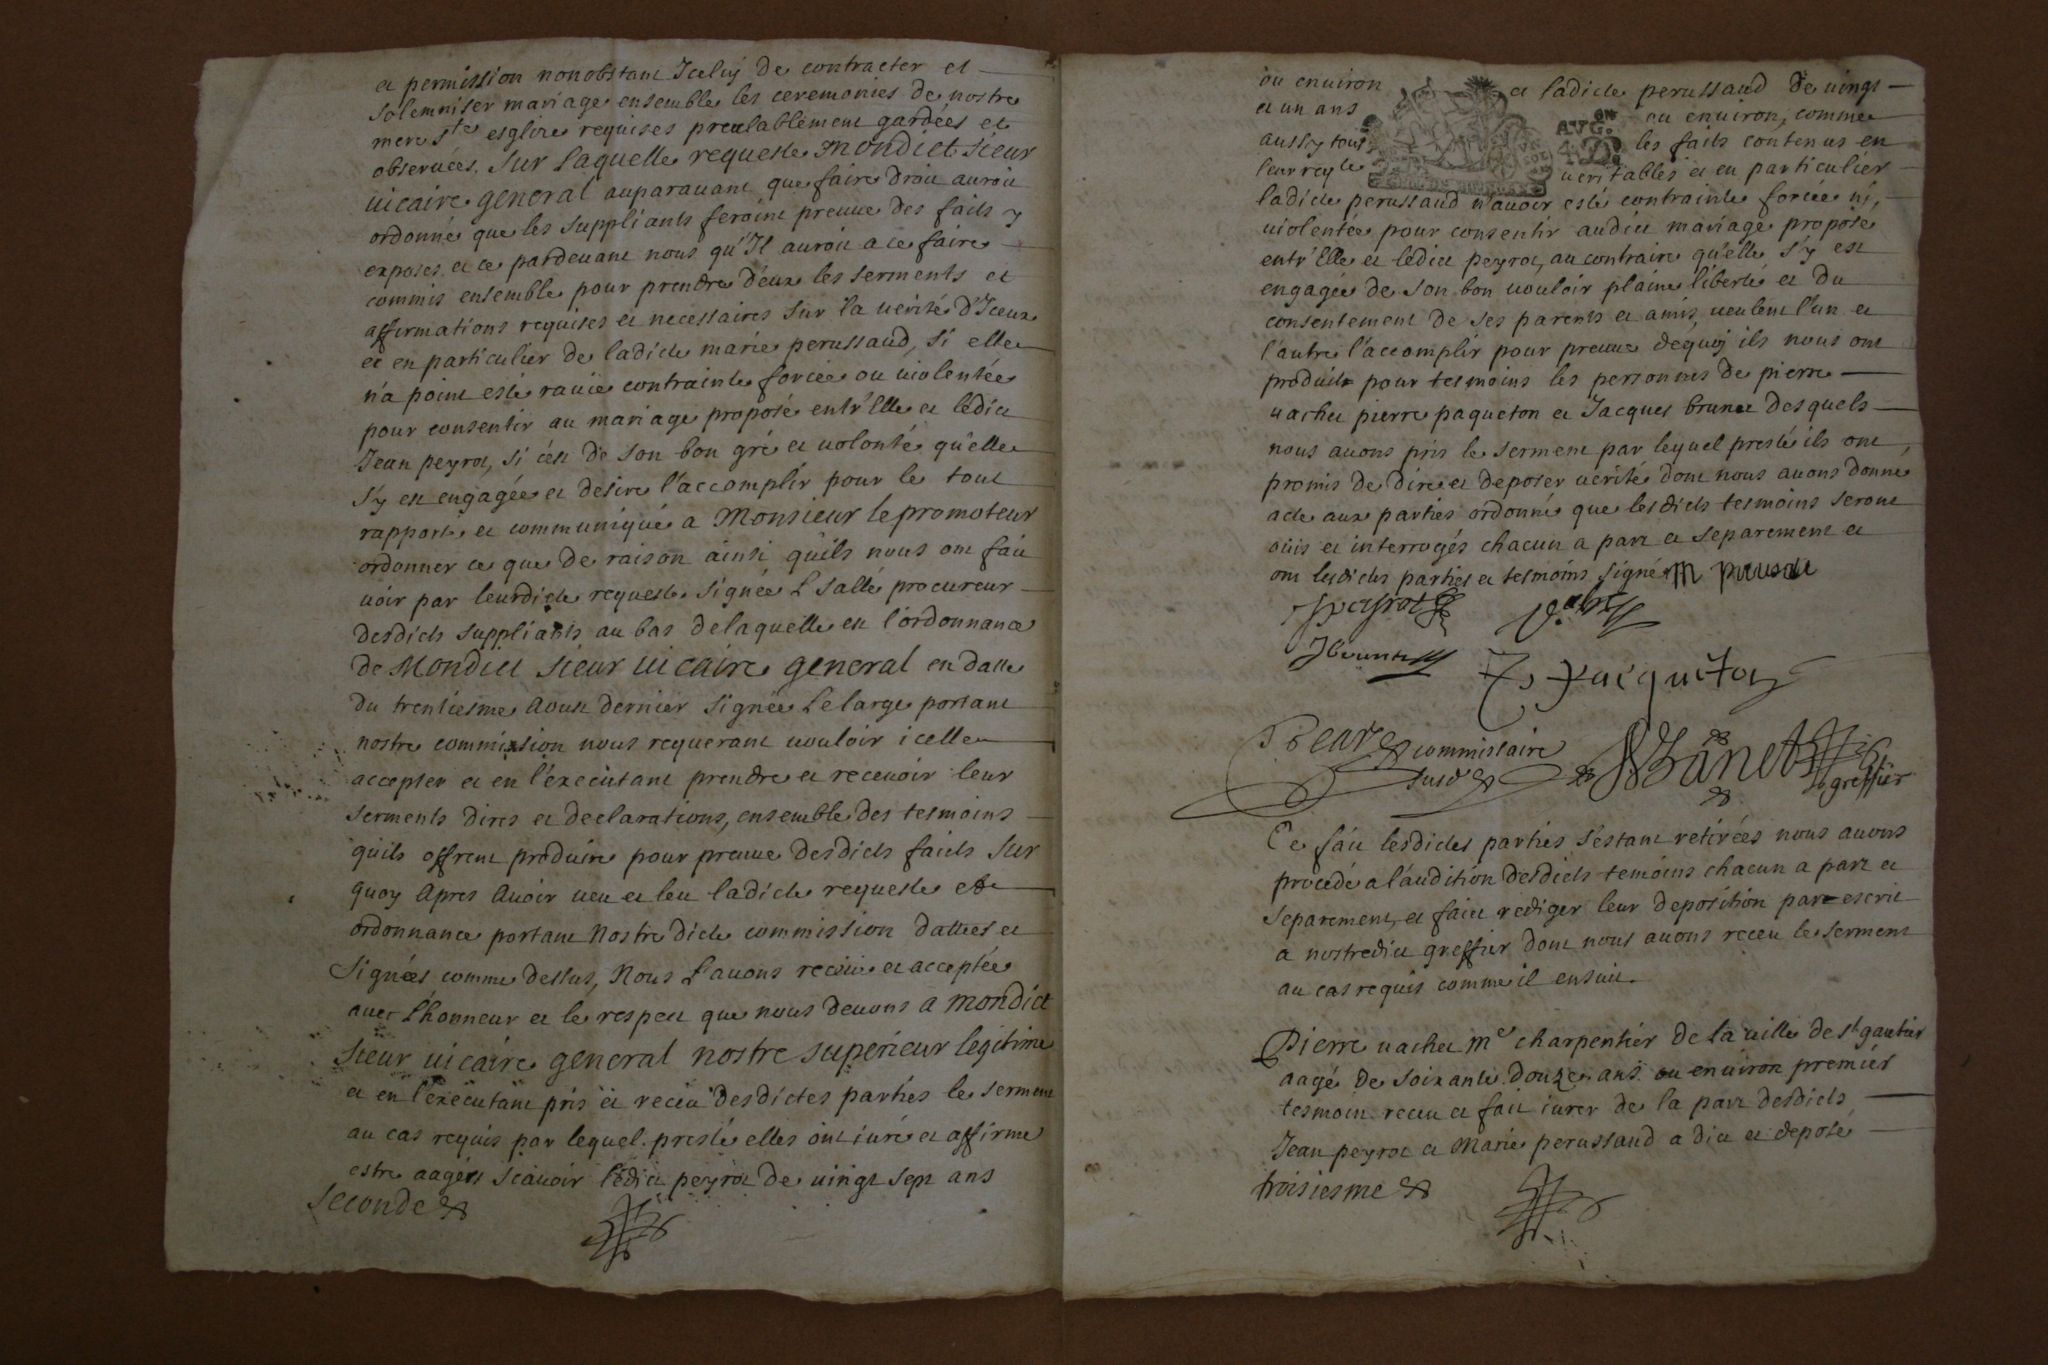 et permission nonobstant Iceluy de contracter et
solemniser mariage ensemble les ceremonies de nostre
mere ste esglize requises prealablement gardées et
observées. Sur laquelle requeste Mondict sieur
vicaire general auparavant que faire droit auroit
ordonné que les suppliants feroint preuve des faits y
exposés et ce pardevant nous qu'Il auroit a ce faire
commis ensemble pour prendre d'eux les serments et
affirmations requises et necessaires sur la verité d'Iceux
et en particulier de ladicte marie perussaud, si elle
n'a point esté ravie contrainte forcée ou violentée
pour consentir au mariage proposé entr'Elle et ledict
Jean peyrot, si c'est de son bon gré et volonté qu'elle
s'y est engagée et desire l'accomplir pour le tout
rapporté et communiqué a Monsieur le promoteur
ordonner ce que de raison ainsi qu'ils nous ont fait
voir par leurdicte requeste signée L Sallé procureur
desdicts suppliants au bas de laquelle est l'ordonnance
de Mondict sieur vicaire general en datte
du trentiesme Aoust dernier signée Lelarge portant
nostre commission nous requerant vouloir icelle
accepter et en l'executant prendre et recevoir leur
serments dires et declarations, ensemble des tesmoins
quils offrent produire pour preuve desdicts faicts sur
quoy Apres Avoir veu et leu ladicte requeste et
ordonnance portant Nostre dicte commission dattées et
signées comme dessus, Nous L'avons receue et acceptée
avec L'honneur et le respect que nous devons a mondict
sieur vicaire general nostre superieur legitime
et en l'executant pris et receu desdictes parties le serment
au cas requis par lequel presté elles ont juré et affirmé
estre aagées scavoir ledict peyrot de vingt sept ans
seconde
ou environ et ladicte perussaud de vingt
et un ans ou environ, comme
AVG.ON
4.D.
aussy tous les faits contenus en
leur reqte veritables et en particulier
ladicte perussaud n'avoir esté contrainte forcée ni,
violentée pour consentir audict mariage proposé
entr'Elle et ledict peyrot, au contraire qu'elle s'y est
engagée de son bon vouloir plaine liberté et du
consentement de ses parents et amis, veulent l'un et
l'autre l'accomplir pour preuve dequoy ils nous ont
produit pour tesmoins les personnes de pierre
vachet pierre paqueton et Jacques brunet desquels
nous avons pris le serment par lequel presté ils ont,
promis de dire et deposer verité dont nous avons donné
acte aux parties ordonné que lesdicts tesmoins seront
ouis et interrogés chacun a part et separement et
ont lesdictes parties et tesmoins signé M
Jpeyrot
Jbrunet
P paqueton
commissaire
susd
greffier
Ce fait lesdictes parties s'estant retirées nous avons
procédé a l'audition desdicts temoins chacun a part et
separement, et faict rediger leur deposition par escrit
a nostredict greffier dont nous avons receu le serment
au cas requis comme il ensuit.
Pierre vachet me charpentier de la ville de st gautier
aagé de soixante douze ans ou environ premier
tesmoin receu et fait jurer de la part desdicts
Jean peyrot et Marie perussaud a dict et deposé
troisiesme